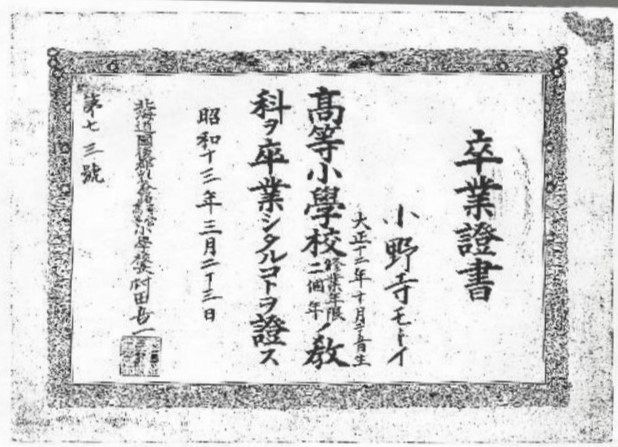 卒業證書
小野寺モトイ
大正十二年十月 日生
高等小學校修業年限二個年ノ教
科ヲ卒業シタルコトヲ證ス
昭和十三年三月二十三日
北海道 小學校長 村田吾一
第七三號